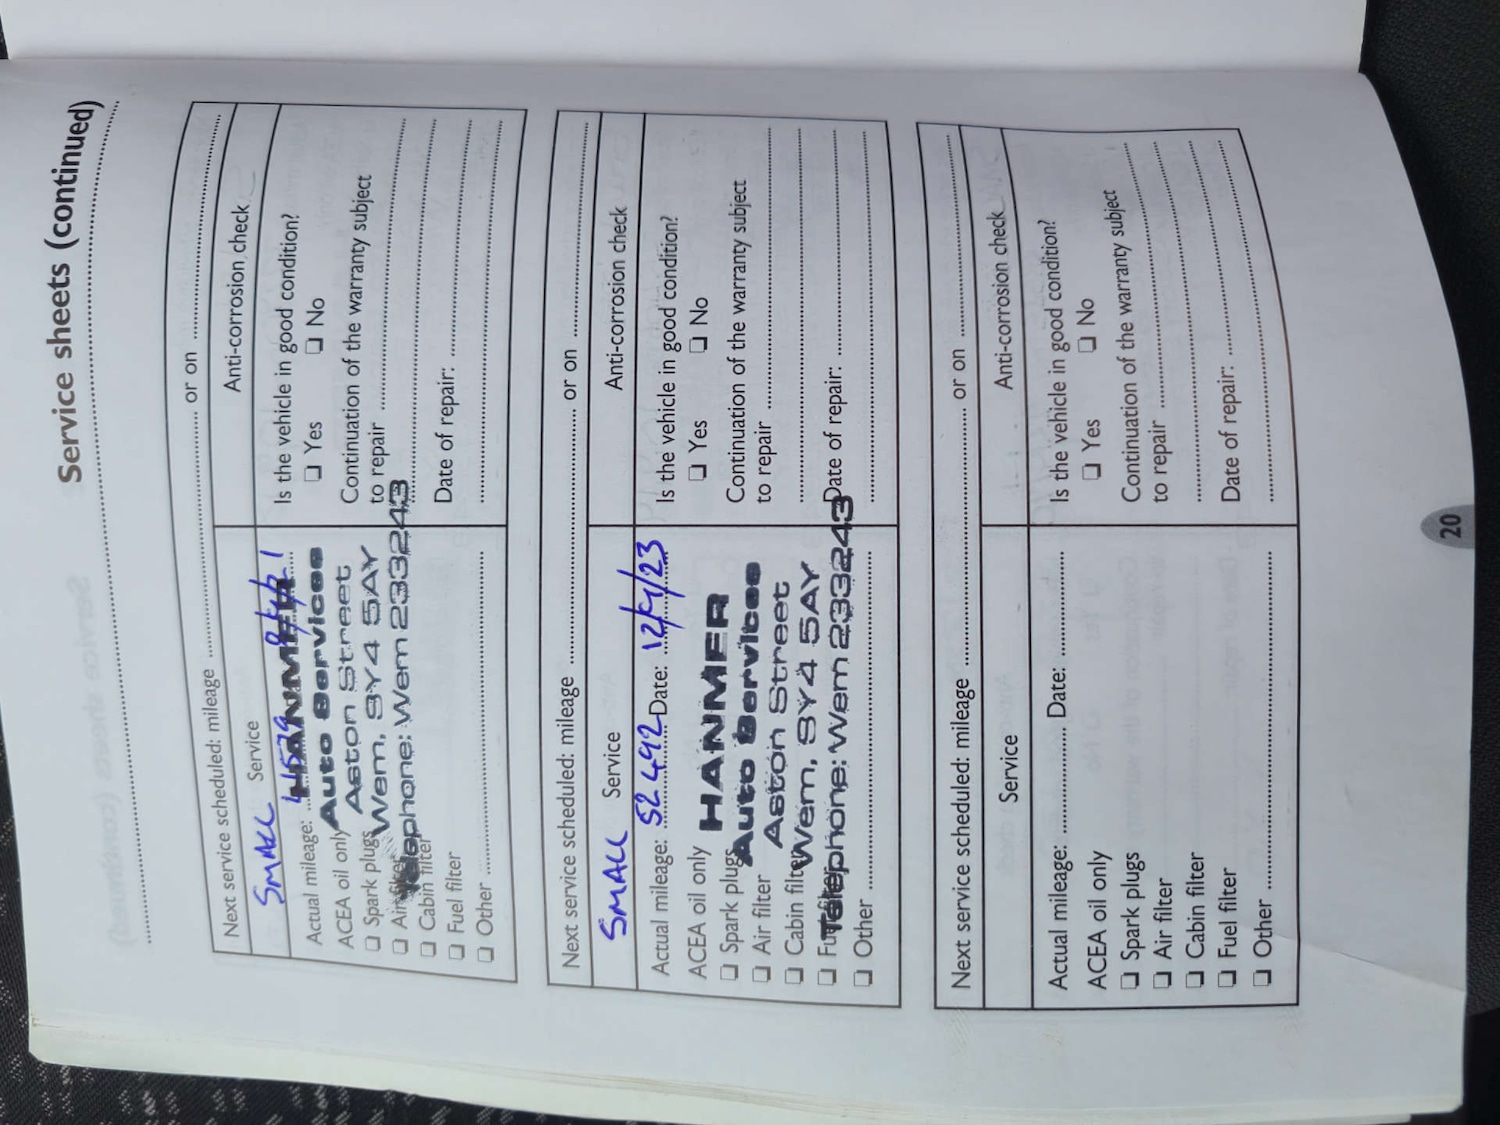 Service sheets (continued)
Next service scheduled: mileage ........ or on ........
SMALL Service
Anti-corrosion check
Actual mileage:
ACEA oil only
❏ Spark plugs
❏ Air filter
❏ Cabin filter
❏ Fuel filter
❏ Other ........
HANMER
Auto Services
Aston Street
Wem, SY4 5AY
Telephone: Wem 233243
Is the vehicle in good condition?
❏ Yes ❏ No
Continuation of the warranty subject
to repair ........
Date of repair: ........
Next service scheduled: mileage ........ or on ........
SMALL Service
Anti-corrosion check
Actual mileage: 52 492 Date: 12/
/23
ACEA oil only
❏ Spark plugs
❏ Air filter
❏ Cabin filter
❏ Fuel filter
❏ Other ........
HANMER
Auto Services
Aston Street
Wem, SY4 5AY
Telephone: Wem 233243
Is the vehicle in good condition?
❏ Yes ❏ No
Continuation of the warranty subject
to repair ........
Date of repair: ........
Next service scheduled: mileage ........ or on ........
Service
Anti-corrosion check
Actual mileage: ........ Date: ........
ACEA oil only
❏ Spark plugs
❏ Air filter
❏ Cabin filter
❏ Fuel filter
❏ Other ........
Is the vehicle in good condition?
❏ Yes ❏ No
Continuation of the warranty subject
to repair ........
Date of repair: ........
20